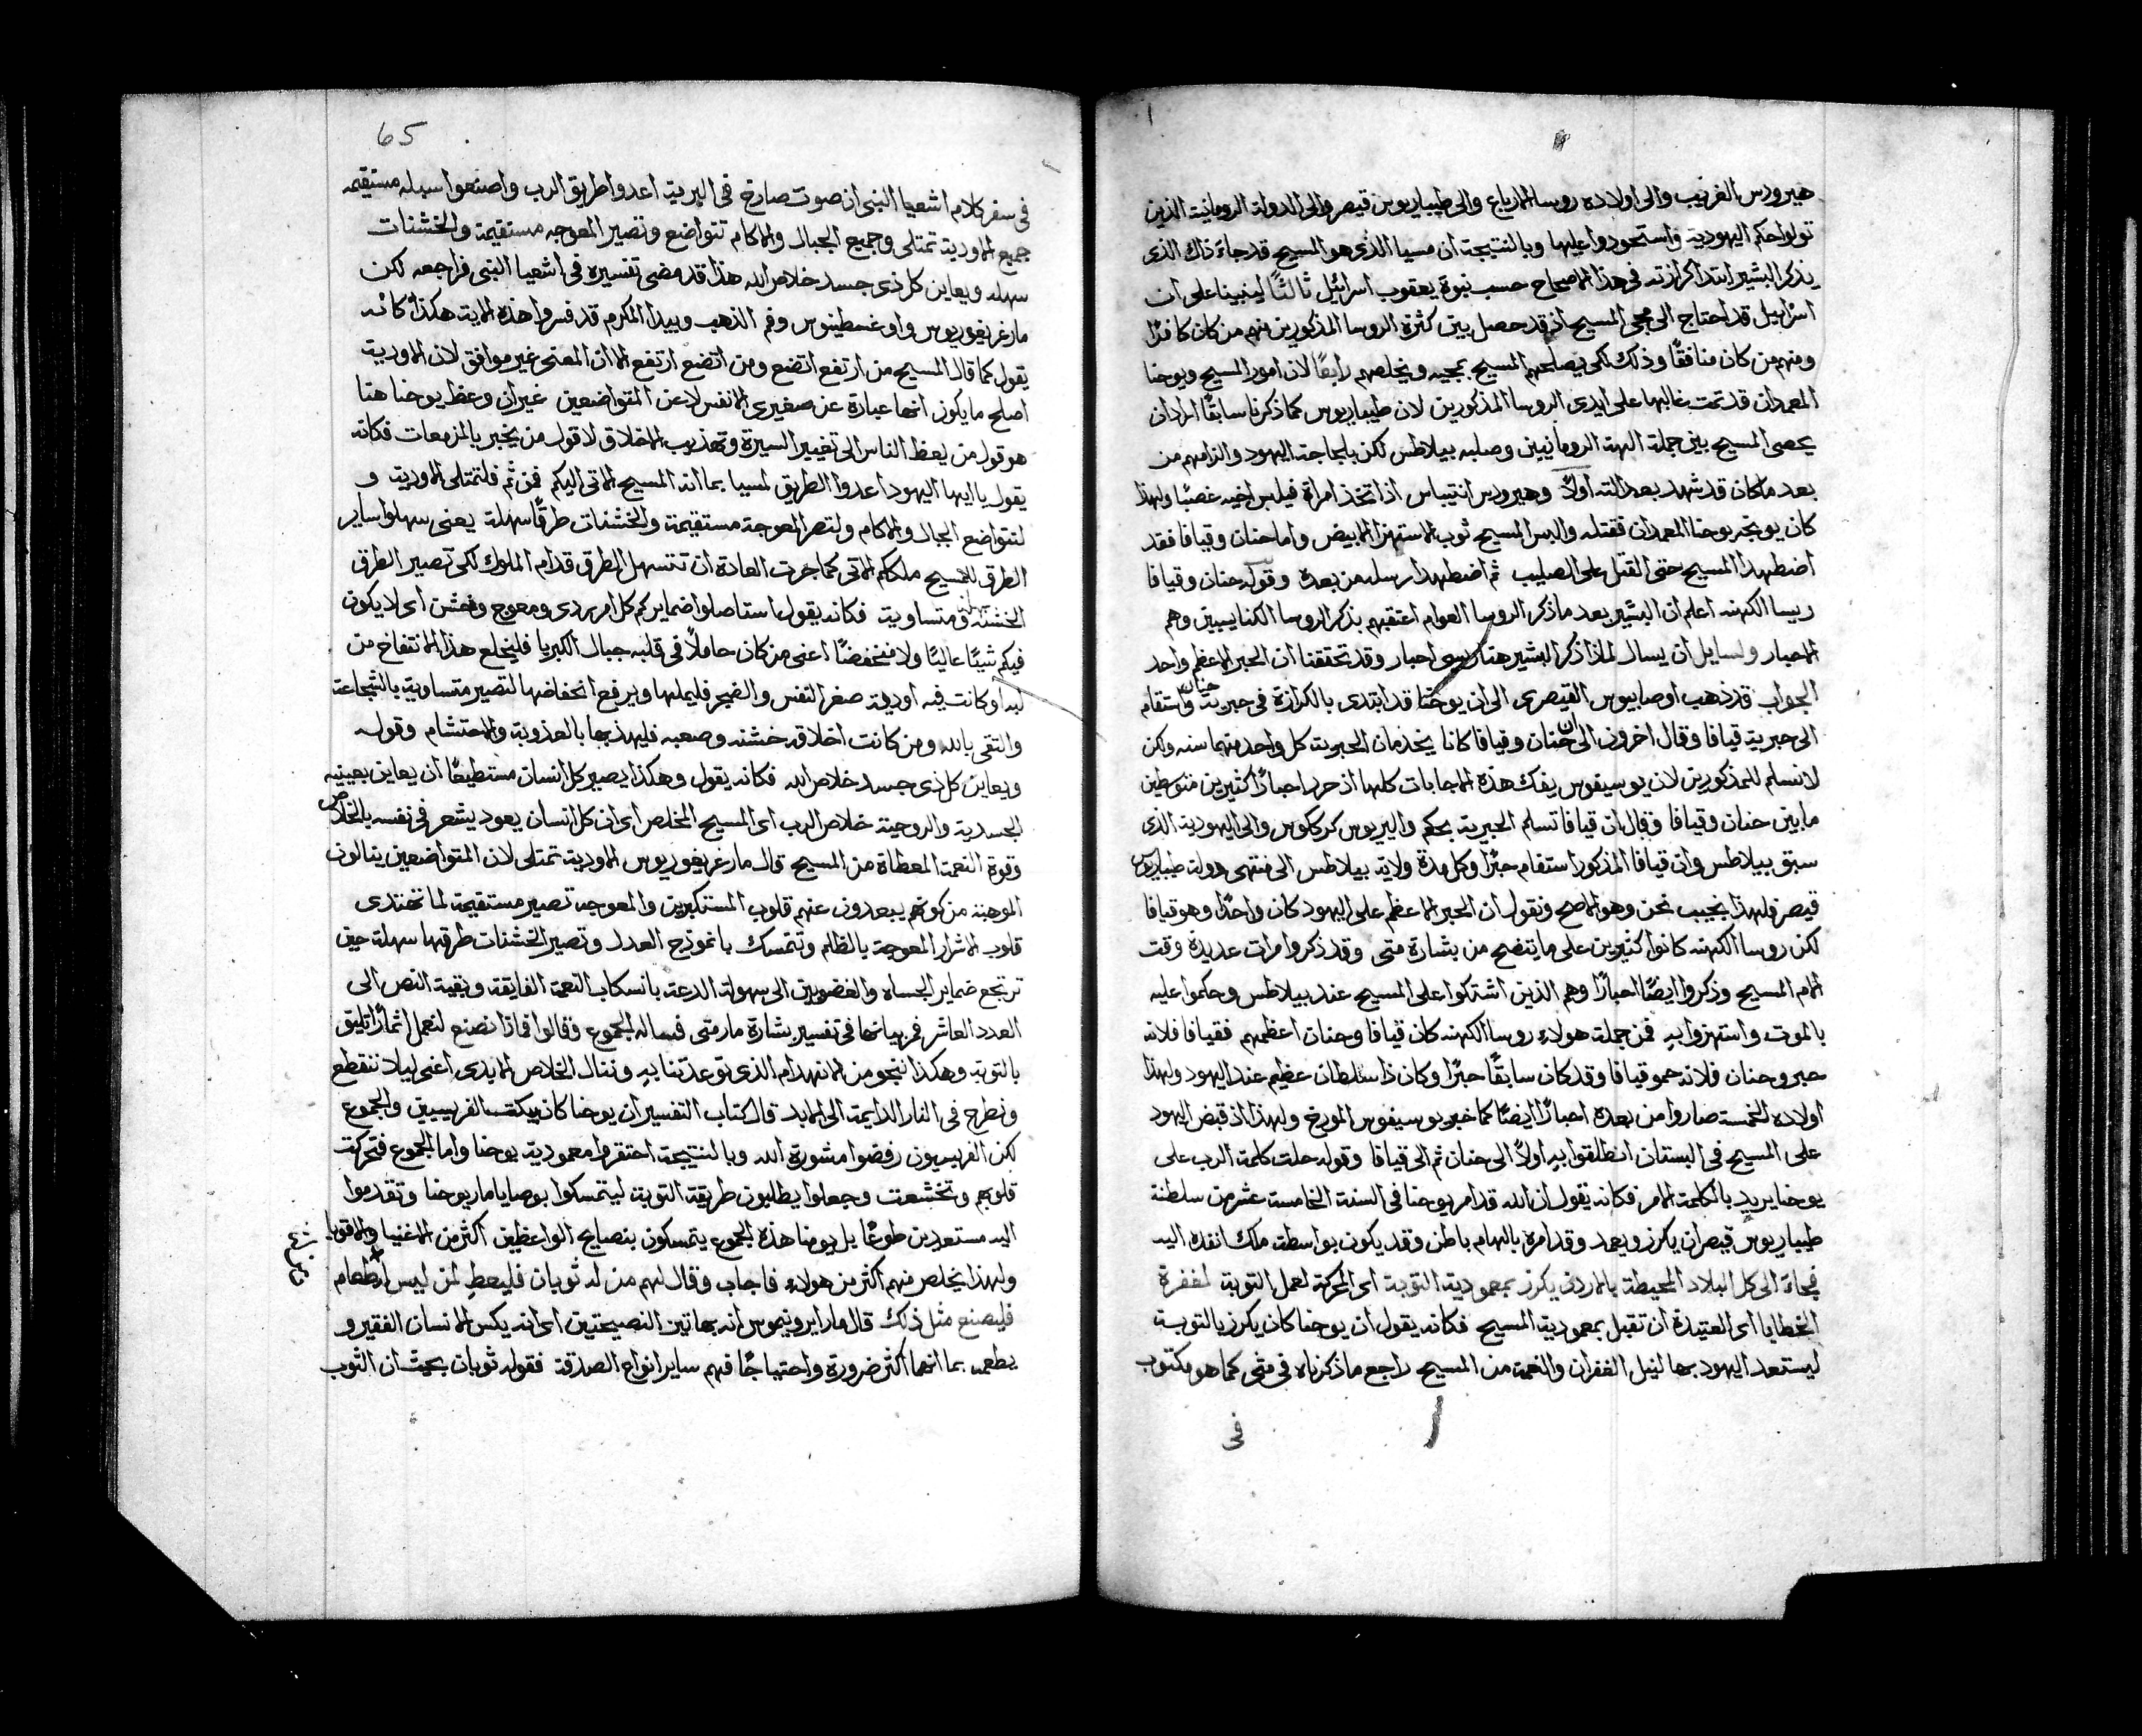 هيرودس الغريب والى اولاده روسا الارباع والى طيباريوس قيصر والى الدولة الرومانية الذين
تولوا حكم اليهودية واستحودوا عليها وبالنتيجة ان مسيا الذى هو المسيح قد جاء ذاك الذى
يذكر البشير ابتدا كرازته فى هذا الاصحاح حسب نبوة يعقوب اسرائيل ثالثًا لينبينا على ان
اسرائيل قد احتاج الى مجى المسيح اذ قد حصل بين كثرة الروسا المذكورين منهم من كان كافرًا
ومنهم من كان منافقًا وذلك لكى يصلحهم المسيح بمجيه ويخلصهم رابعًا لان امور المسيح ويوحنا
المعمدان قد تمت غالبها على ايدى الروسا المذكورين لان طيباريوس كما ذكرنا سابقًا اراد ان
يحصى المسيح بين جملة الهة الرومانيين وصلبه بيلاطس لكن بلجاجة اليهود والزامهم من
بعد ما كان قد شهد بعدالته اولاً وهيرودس انتيباس اذ اتخذ امراة فيلبس اخيه غصبًا ولهذا
كان يوبخه يوحنا المعمدان فقتله والبس المسيح ثوب الاستهزا الابيض واما حنان وقيافا فقد
اضطهدا المسيح حتى القتل على الصليب ثم اضطهدا رسله من بعده وقوله حنان وقيافا
ريسا الكهنه اعلم ان البشير بعد ما ذكر الروسا العوام اعتقبهم بذكر الروسا الكنايسيين وهم
الاحبار ولسايل ان يسال لماذا ذكر البشير هنا احبار وقد تحققنا ان الحبر الاعظم واحد
الجواب قد ذهب اوصابيوس القيصرى الى ان يوحنا قد ابتدى بالكرازة فى حبرية حنان واستقام
الى حبرية قيافا وقال اخرون الى ان حنان وقيافا كانا يخدمان الحبرية كل واحد منهما سنه ولكن
لا نسلم للمذكورين لان يوسيفوس يفك هذه الاجابات كلها اذ حرر احبارًا كثيرين متوسطين
ما بين حنان وقيافا وقال ان قيافا تسلم الحبرية بحكم واليريوس كركوس والى اليهودية الذى
سبق بيلاطس وان قيافا المذكور استقام حبرًا وكل مدة ولاية بيلاطس الى منتهى دولة طيباريوس
قيصر فلهذا يجيب نحن وهو الاصح ونقول ان الحبر الاعظم على اليهود كان واحدًا وهو قيافا
لكن روسا الكهنه كانوا كثيرين على ما يتضح من بشارة متى وقد ذكروا مرات عديدة وقت
الام المسيح وذكروا ايضًا احبارًا وهم الذين اشتكوا على المسيح عند بيلاطس وحكموا عليه
بالموت واستهزوا به فمن جملة هولاء روسا الكهنه كان قيافا وحنان اعظمهم فقيافا فلانه
حبر وحنان فلانه حمو قيافا وقد كان سابقًا حبرًا وكان ذا سلطان عظيم عند اليهود ولهذا
اولاده الخمسة صاروا من بعده احبارًا ايضًا كما خبر يوسيفوس المورخ ولهذا اذ قبض اليهود
على المسيح فى البستان انطلقوا به اولاً الى حنان ثم الى قيافا وقوله حلت كلمة الرب على
يوحنا يريد بالكلمة الامر فكانه يقول ان الله قد امر يوحنا فى السنة الخامسة عشر من سلطنة
طيباريوس قيصر ان يكرز ويعمد وقد امره بالهام باطن وقد يكون بواسطة ملك انفده اليه
فجاء الى كل البلاد المحيطة بالاردن يكرز بمعمودية التوبة اى المحركة لعمل التوبة لمغفرة
الخطايا اى العتيدة ان تقبل بمعمودية المسيح فكانه يقول ان يوحنا كان يكرز بالتوبة
ليستعد اليهود بها لنيل الغفران والنعمة من المسيح راجع ما ذكرناه فى متى كما هو مكتوب
فى
65
فى سفر كلام اشعيا النبى ان صوت صارخ فى البرية اعدوا طريق الرب واصنعوا سبله مستقيمه
جميع الاودية تمتلى وجميع الجبال والاكام تتواضع وتصير المعوجه مستقيمة والخشنات
سهله ويعاين كل ذى جسد خلاص الله هذا قد مضى تفسيره فى اشعيا النبى فراجعه لكن
مار غريغوريوس واوغسطينوس وفم الذهب وبيدا المكرم قد فسروا هذه الاية هكذا كانه
يقول كما قال المسيح من ارتفع اتضع ومن اتضع ارتفع الا ان المعنى غير موافق لان الاودية
اصلح ما يكون انها عبارة عن صغيرى الانفس لا عن المتواضعين غير ان وعظ يوحنا هنا
هو قول من يعظ الناس الى تغيير السيرة وتهذيب الاخلاق لا قول من يخبر بالمزمعات فكانه
يقول يا ايها اليهود اعدوا الطريق لمسيا بما انه المسيح الاتى اليكم فمن ثم فلتمتلى الاودية و
لتتواضع الجبال والاكام ولتصر المعوجة مستقيمة والخشنات طرقًا سهلة يعنى سهلوا ساير
الطرق للمسيح ملككم الاتى كما جرت العادة ان تتسهل الطرق قدام الملوك لكى تصير الطرق
الخشنة سهلة ومتساوية فكانه يقول استاصلوا ضمايركم كل امر ردى ومعوج وخشن اى لا يكون
فيكم شيئًا عاليًا ولا منخفضًا اعنى من كان حاملاً فى قلبه جبال الكبريا فليخلع هذا الانتفاخ من
لبه او كانت فيه اودية صغر النفس والضجر فليملها ويرفع انخفاضها لتصير متساوية بالشجاعة
والتقى بالله ومن كانت اخلاقه خشنه وصعبه فليهذبها بالعذوبة والاحتشام وقوله
ويعاين كل ذى جسد خلاص الله فكانه يقول وهكذا يصير كل انسان مستطيعًا ان يعاين بعينيه
الجسدية والروحية خلاص الرب اى المسيح المخلص اى ان كل انسان يعود يشعر فى نفسه بالخلاص
وقوة النعمة المعطاة من المسيح قال مار غريغوريوس الاودية تمتلى لان المتواضعين ينالون
الموهبة من كونهم يبعدون عنهم قلوب المستكبرين والمعوجة تصير مستقيمة لما تهتدى
قلوب الاشرار المعوجة بالظلم وتتمسك بانموذج العدل وتصير الخشنات طرقها سهلة حين
ترتجع ضماير الجساه والغضوبين الى سهولة الدعة بانسكاب النعمة الفايقة وبقية النص الى
العدد العاشر فمر بيانها فى تفسير بشارة مار متى فساله الجموع وقالوا فماذا نصنع لنعمل اثمارًا تليق
بالتوبة وهكذا ننجو من الانهدام الذى توعدتنا به وننال الخلاص الابدى اعنى ليلا ننقطع
ونطرح فى النار الدايمة الى الابد قال كتاب التفسير ان يوحنا كان يبكت الفريسيين والجموع
لكن الفريسيون رفضوا مشورة الله وبالنتيجة احتقروا معمودية يوحنا واما الجموع فتحركت
قلوبهم وتخشعت وجعلوا يطلبون طريقة التوبة ليتمسكوا بوصايا مار يوحنا وتقدموا
اليه مستعدين طوعًا بل يومنا هذه الجموع يتمسكون بنصايح الواعظين اكثر من الاغنيا والاقويا
ولهذا يخلص منهم اكثر من هولاء فاجاب وقال لهم من له ثوبان فليعط لمن ليس له طعام
فليصنع مثل ذلك قال مار ايرونيموس انه بهاتين النصيحتين اى انه يكس الانسان الفقير و
يطعمه بما انهما اكثر ضرورة واحتياجًا فهم ساير انواع الصدقة فقوله ثوبان بحيث ان الثوب